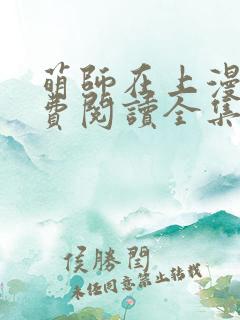 萌師在上漫
費閱讀全集
侯勝閏
未经同意禁止转载